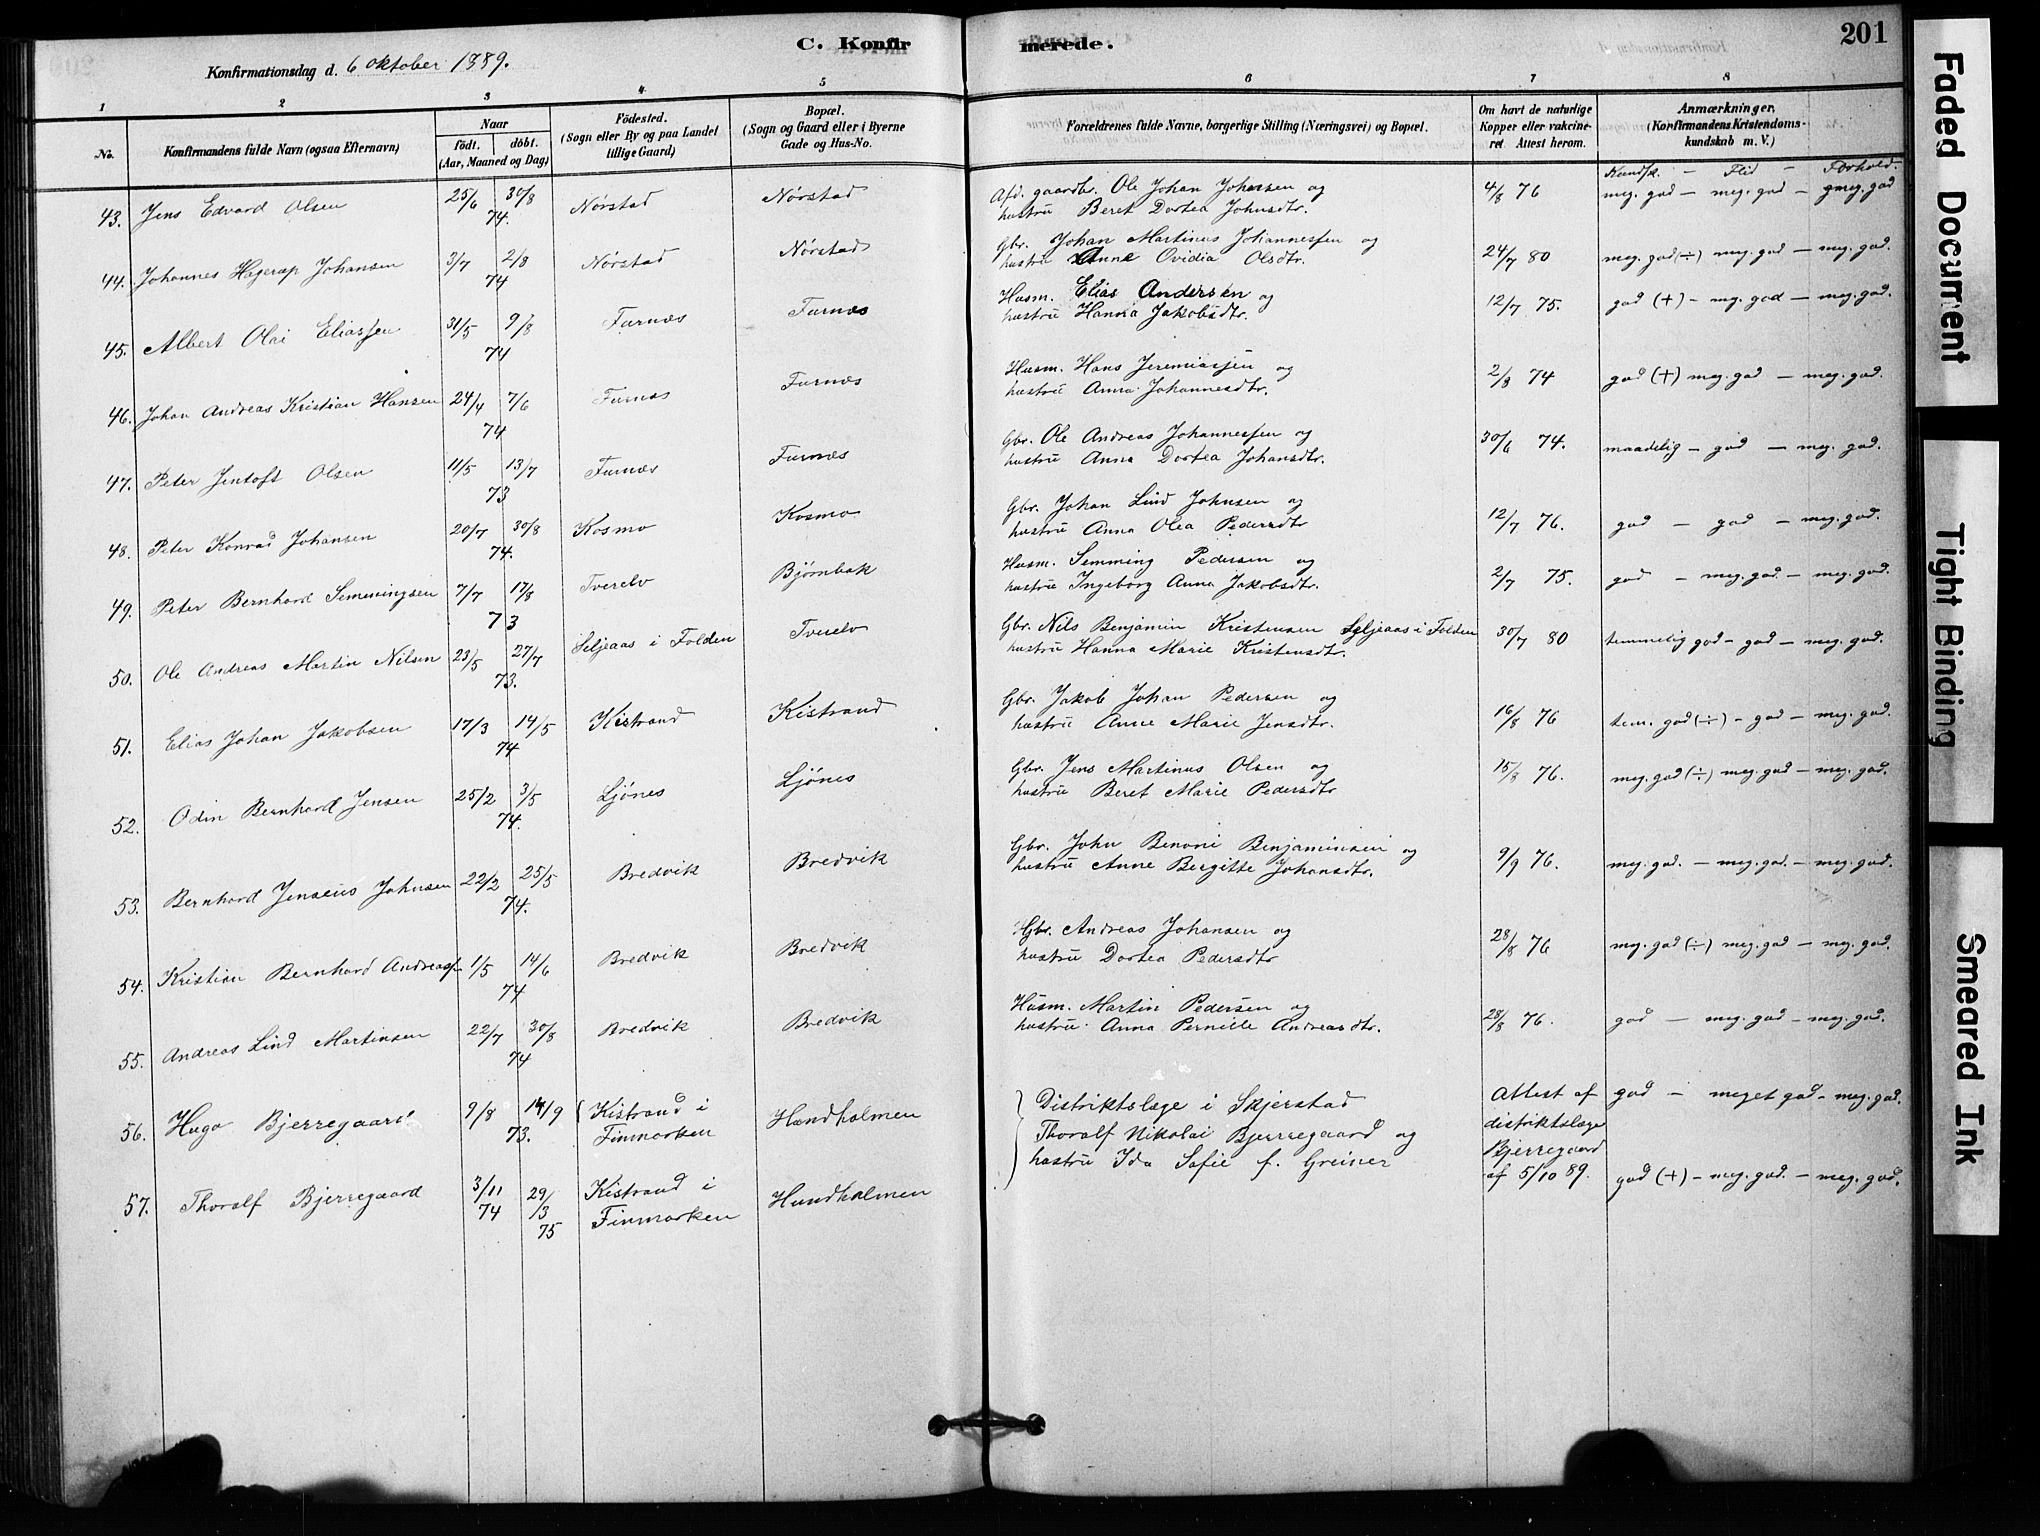 C. Konfir merede. 201
Konfirmationsdag d. 6 oktober 1889.
1 2 3 4 5 6 7 8
No.
Konfirmandens fulde Navn (ogsaa Efternavn)
Naar
født. døbt.
(Aar, Maaned og Dag)
Fødested.
(Sogn eller By og paa Landet
tillige Gaard)
Bopæl.
(Sogn og Gaard eller i Byerne
Gade og Hus-No.
Forældrenes fulde Navne, borgerlige Stilling (Næringsvei) og Bopæl.
Om havt de naturlige
Kopper eller vakcine-
ret Attest herom.
Anmærkninger.
(Konfirmandens Kristendoms-
kundskab m. V.)
Kundsk. — Flid — Forhold.
43. Jens Edvard Olsen 25/6 30/8 74. Nørstad Nørstad Afd. gaardbr. Ole Johan Johnsen og 4/8 76 meg. god — meg. god — meg. god
hustru Beret Dortea Johnsdtr.
44. Johannes Hagerup Johansen 3/7 2/8 74 Nørstad Nørstad Gbr. Johan Martinus Johannessen og 24/7 80 meg. god (÷) meg. god — meg. god.
hustru Anne Ovidia Olsdtr.
45. Albert Olai Eliassen 31/5 9/8 74 Furnæs Furnæs Husm. Elias Andersen og 12/7 75. god (+) — meg. god — meg. god.
hustru Hanna Jakobsdtr.
46. Johan Andreas Kristian Hansen 24/4 7/6 74 Furnæs Furnæs Husm. Hans Jeremiassen og 2/8 74 god (+) meg. god — meg. god.
hustru Anna Johannesdtr.
47. Peter Jentoft Olsen 11/5 13/7 73 Furnæs Furnæs Gbr. Ole Andreas Johannessen og 30/6 74. maadelig — god — meg. god.
hustru Anna Dortea Johansdtr.
48. Peter Konrad Johansen 20/7 30/8 74. Kosmo Kosmo Gbr. Johan Lind Johnsen og 12/7 76. god — god — meg. god.
hustru Anna Olea Pedersdtr
49. Peter Bernhard Semmingsen 7/7 17/8 73 Tverelv Bjørnbak Husm. Semming Pedersen og 2/7 75. god — meg. god. — meg. god.
hustru Ingeborg Anna Jakobsdtr.
50. Ole Andreas Martin Nilsen 23/5 27/7 73. Seljeaas i Folden Tverelv Gbr. Nils Benjamin Kristensen Seljeaas i Folden 30/7 80 temmelig god — god — meg. god.
hustru Hanna Marie Kristensdtr.
51. Elias Johan Jakobsen 17/3 14/5 74 Kistrand Kistrand Gbr. Jakob Johan Pedersen og 16/8 76 tem. god (÷) — god — meg. god.
hustru Anne Marie Jensdtr.
52. Odin Bernhard Jensen 25/2 3/5 74. Ljønes Ljønes Gbr. Jens Martinus Olsen og 15/8 76. meg. god (÷) meg. god — meg. god.
hustru Beret Marie Pedersdtr
53. Bernhard Jenseus Johnsen 22/2 25/5 74. Bredvik Bredvik Gbr. John Benoni Benjaminsen og 9/9 76. meg. god. — meg. god. — meg. god.
hustru Anne Bergitte Johansdtr.
54. Kristian Bernhard Andreassen 1/5 14/6 74 Bredvik Bredvik Gbr. Andreas Johansen og 28/8 76 meg. god (÷) meg. god — meg. god.
hustru Dortea Pedersdtr
55. Andreas Lind Martinsen 22/7 30/8 74 Bredvik Bredvik Husm. Martin Pedersen og 28/8 76. god — meg. god — meg. god.
hustru Anna Pernille Andreasdtr.
56. Hugo Bjerregaard 9/8 14/9 73. Kistrand i Finmarken Hundholmen Distriktslæge i Skjerstad Attest af god — meget god — meg. god.
Thoralf Nikolai Bjerregaard og distriktslæge
hustru Ida Sofie f. Greiner Bjerregaard
af 5/10 89.
57. Thoralf Bjerregaard 3/11 74 29/3 75 Kistrand i Finmarken Hundholmen god (+) — meg. god. — meg. god.
Faded Document
Tight Binding
Smeared Ink